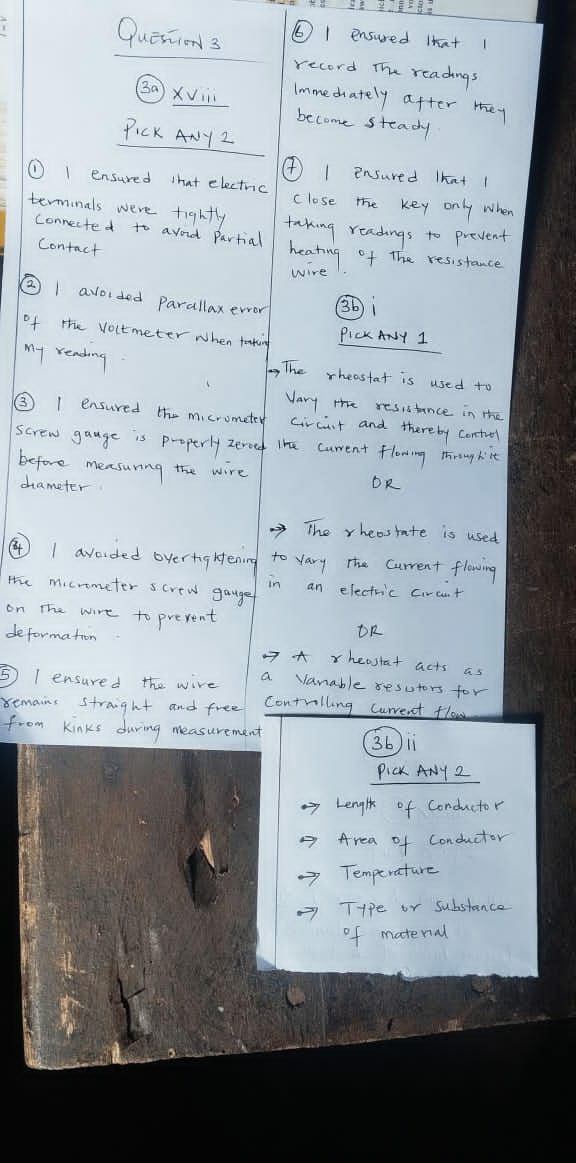 QUESTION 3
3a xviii
PICK ANY 2
1 I ensured that electric
terminals were tightly
Connected to avoid Partial
Contact
2 I avoided Parallax error
of the Voltmeter when taking
my reading.
3 I ensured the micrometer
screw gauge is properly zeroed
before measuring the wire
diameter.
4 I avoided overtightening
the micrometer screw gauge
on the wire to prevent
deformation.
5 I ensured the wire
remains straight and free
from kinks during measurement
6 I ensured that I
record the readings
Immediately after they
become steady.
7 I ensured that I
close the key only when
taking readings to prevent
heating of the resistance
wire.
3b i
PICK ANY 1
→ The rheostat is used to
Vary the resistance in the
circuit and thereby control
the current flowing through it
OR
→ The rheostate is used
to vary the current flowing
in an electric circuit
OR
→ A rheostat acts as
a Variable resistors for
Controlling current flow
3b ii
PICK ANY 2
→ Length of Conductor
→ Area of Conductor
→ Temperature
→ Type or Substance
of material